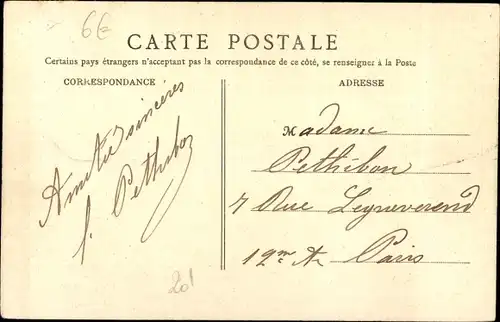 6€
CARTE POSTALE
Certains pays étrangers n'acceptant pas la correspondance de ce côté, se renseigner à la Poste
CORRESPONDANCE
Amitiés sincères
Pethibon
ADRESSE
Madame
Pethibon
7 Rue Legraverend
12me Ar
Paris